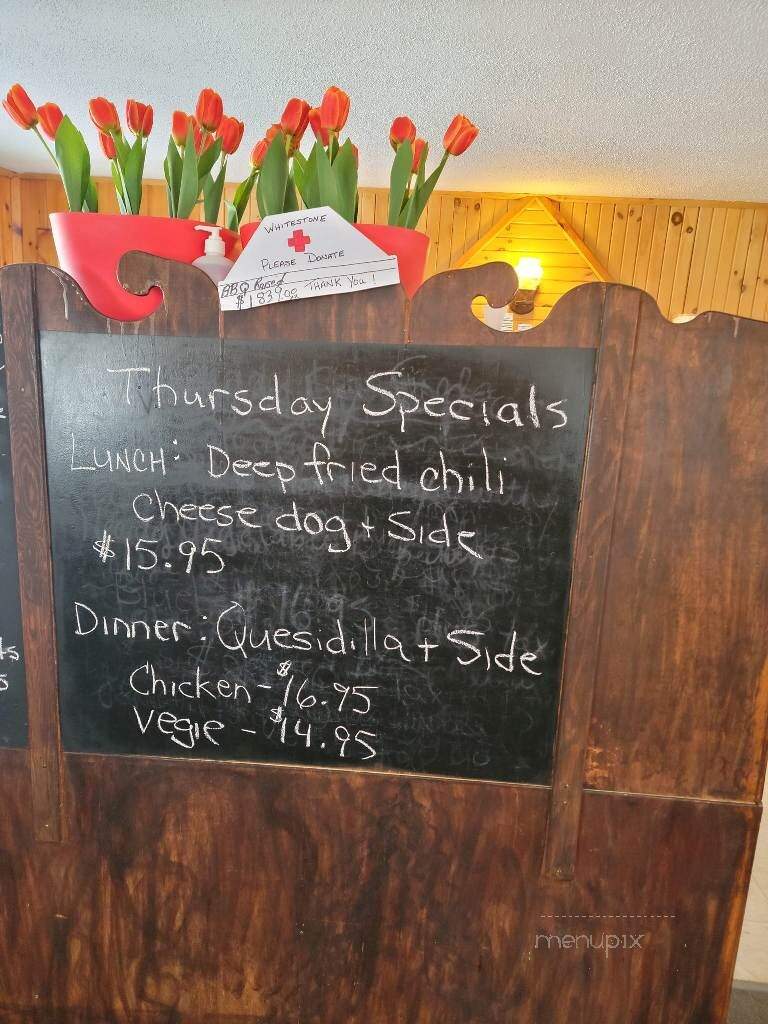 WHITESTONE
PLEASE DONATE
BBQ Raised THANK YOU!
$1839.00
Thursday Specials
LUNCH: Deep fried chili
cheese dog + Side
$15.95
Dinner: Quesidilla + Side
Chicken - $16.95
Vegie - $14.95
menupix